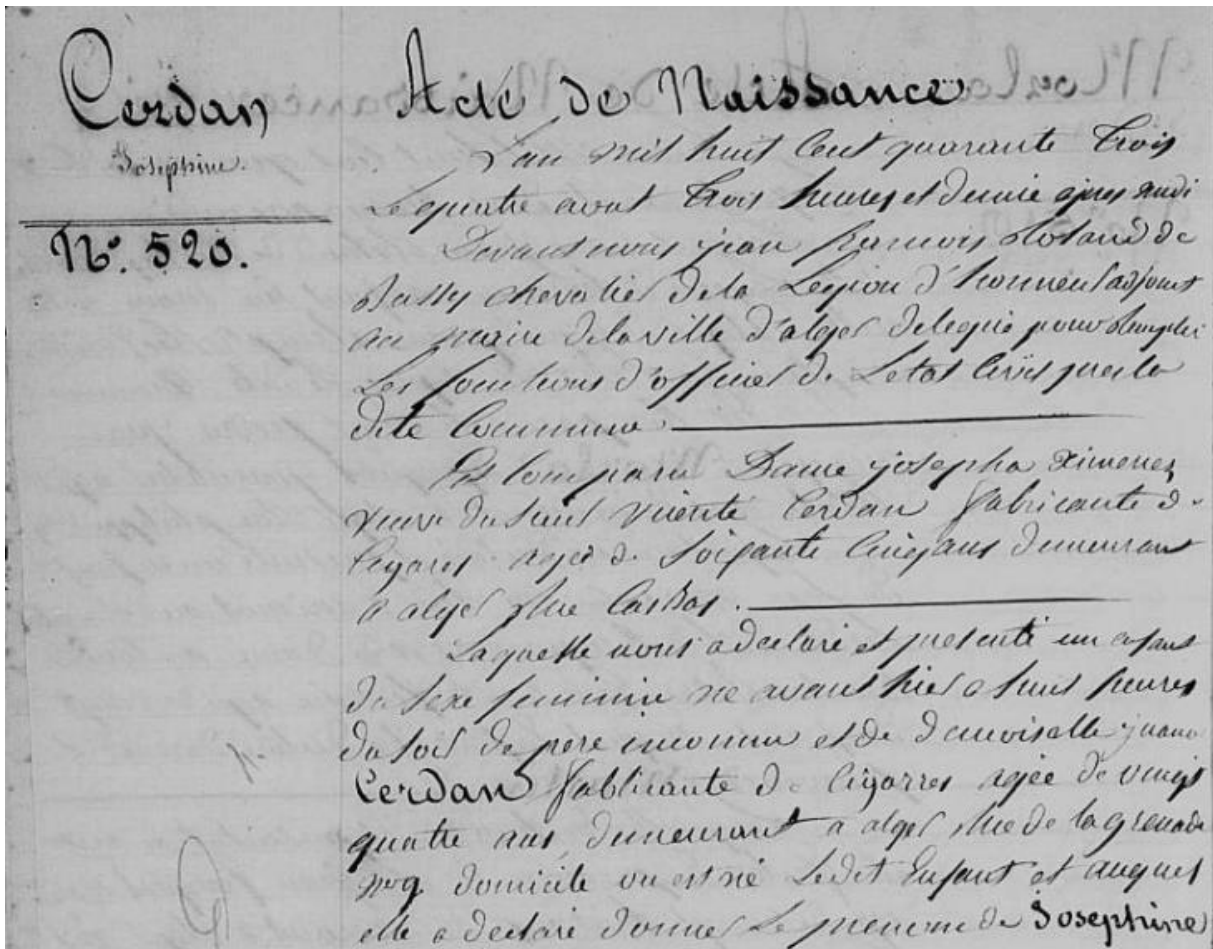 Cerdan
Josephine.
N°. 520.
Acte de Naissance
L'an mil huit Cent quarante Trois
Le quatre aout Trois heures et demie apres midi
Devant nous jean francois Roland de
Bussy chevalier de la Legion d'honneur adjoint
au maire de la ville d'alger delegué pour Remplir
Les fonctions d'officier de Letat Civil de la
dite Commune.
Est Comparu Dame josepha Ximenez
veuve du Vicente Cerdan fabricante de
Cigares agée de Soixante Cinq ans demeurant
a alger Rue Casbas.
Laquelle nous a declaré et presenté un enfant
du Sexe feminin né avant hier a huit heures
du soir de pere inconnu et de demoiselle juana
Cerdan fabricante de Cigarres agée de vingt
quatre ans, demeurant a alger Rue de la grenade
n° 9 domicile ou est né Ledit Enfant et auquel
elle a declaré donner Le prenom de Josephine